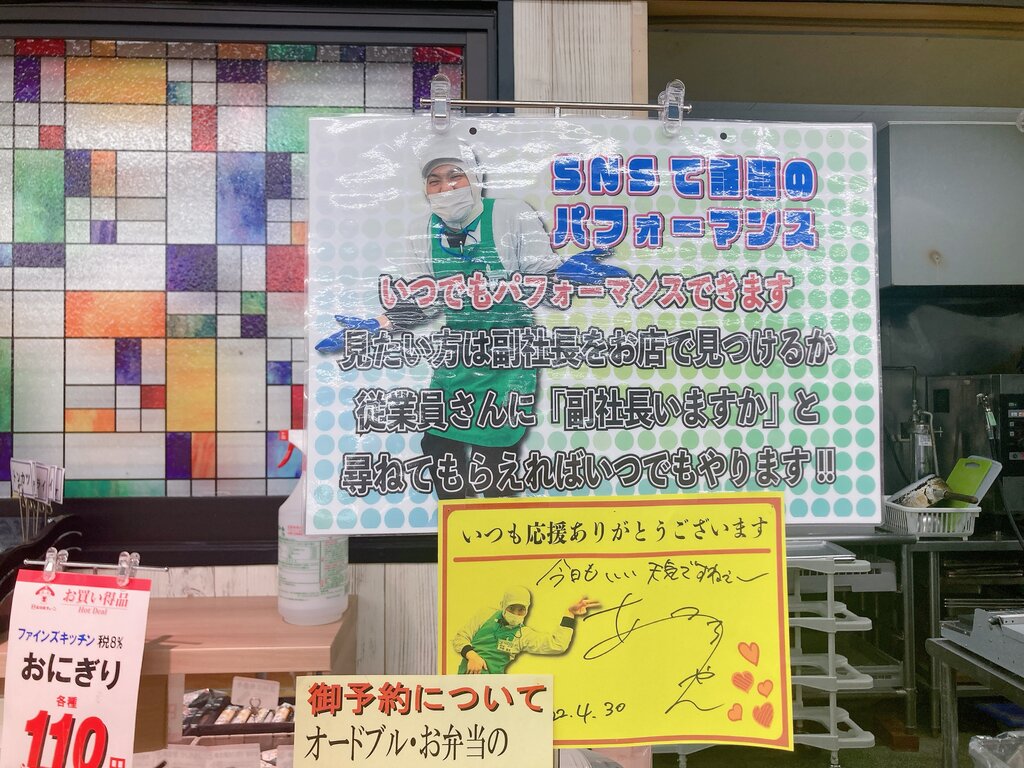 SNSで話題の
パフォーマンス
いつでもパフォーマンスできます
見たい方は副社長をお店で見つけるか
従業員さんに「副社長いますか」と
尋ねてもらえればいつでもやります!!
いつも応援ありがとうございます
今日もいい天気ですねぇ〜
あつすやん
22.4.30
御予約について
オードブル・お弁当の
お買い得品
Hot Deal
ファインズキッチン 税8%
おにぎり
各種
110円